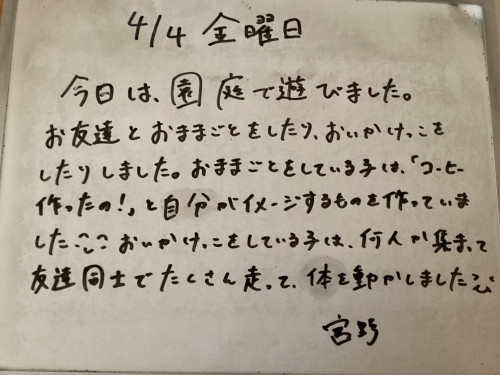 4/4 金曜日
今日は、園庭で遊びました。
お友達とおままごとをしたり、おいかけっこを
したりしました。おままごとをしている子は、「コーヒー
作ったの!」と自分がイメージするものを作っていま
した。おいかけっこをしている子は、何人か集まって
友達同士でたくさん走って、体を動かしました
宮野